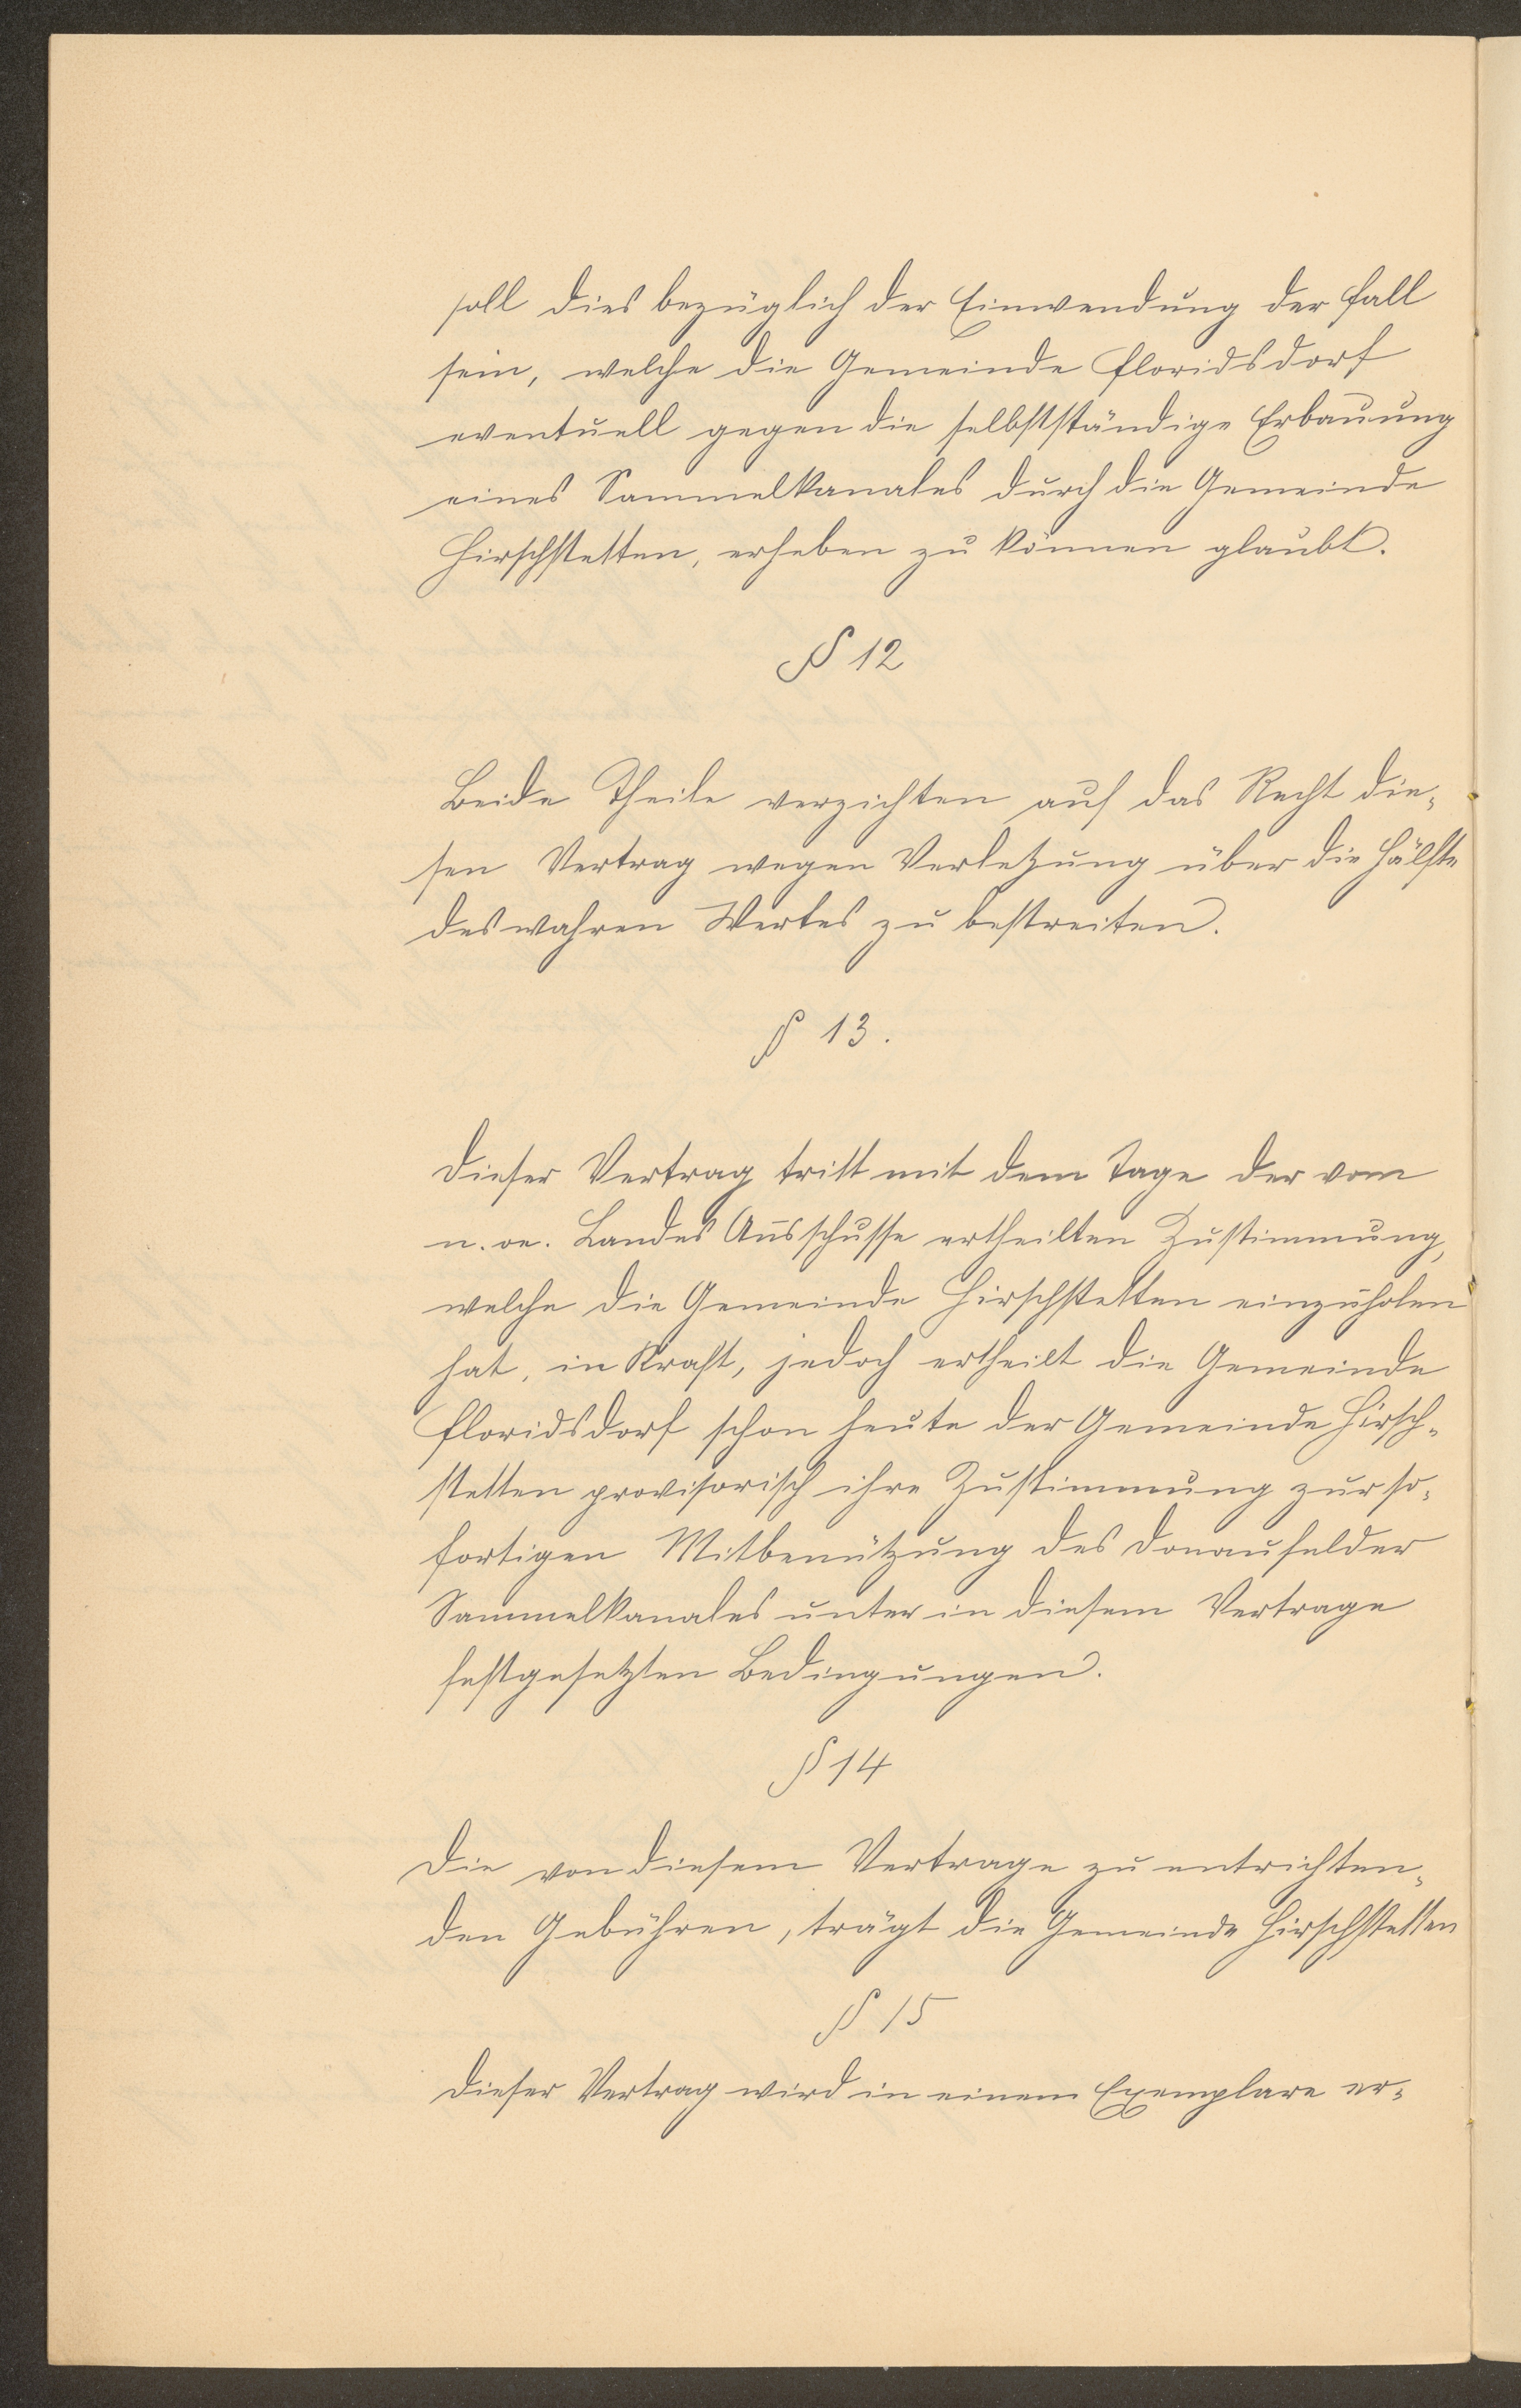 soll dies bezüglich der Einwendung der Fall
sein, welche die Gemeinde Floridsdorf
eventuell gegen die selbstständige Erbauung
eines Sammelkanales durch die Gemeinde
Hirschstetten, erheben zu können glaubt.
§ 12
Beide Theile verzichten auf das Recht die-
sen Vertrag wegen Verletzung über die Hälfte
des wahren Wertes zu bestreiten.
§ 13.
Dieser Vertrag tritt mit dem Tage der vom
n. oe. Landes Ausschusse ertheilten Zustimmung,
welche die Gemeinde Hirschstetten einzuholen
hat, in Kraft, jedoch ertheilt die Gemeinde
Floridsdorf schon heute der Gemeinde Hirsch-
stetten provisorisch ihre Zustimmung zur so-
fortigen Mitbenützung des Donaufelder
Sammelkanales unter in diesem Vertrage
festgesetzten Bedingungen.
§ 14
Die von diesem Vertrage zu entrichten-
den Gebühren, trägt die Gemeinde Hirschstetten
§ 15
Dieser Vertrag wird in einem Exemplare er-